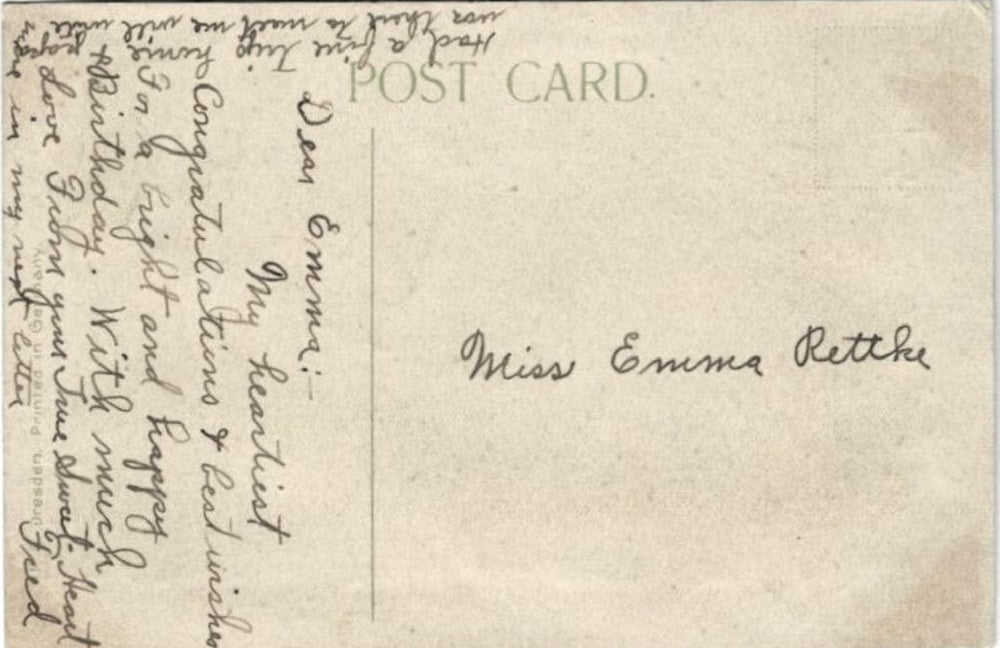 POST CARD.
Dear Emma:-
My heartiest
Congratulations & best wishes
For a bright and happy
Birthday. With much
Love From your True Sweet-Heart
Fred
Had a fine Trip home
was there to meet me will write
more in my next letter
Miss Emma Rettke
Dresden. Printed in